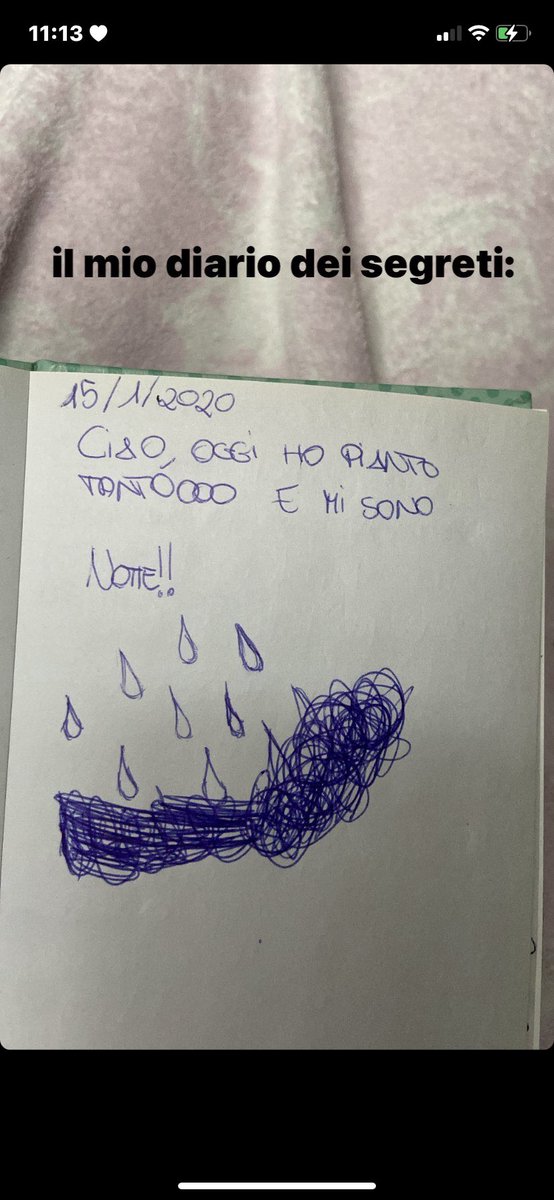 11:13
il mio diario dei segreti:
15/1/2020
CIAO, OGGI HO PIANTO
TANTÓOOO E MI SONO
NOTTE!!